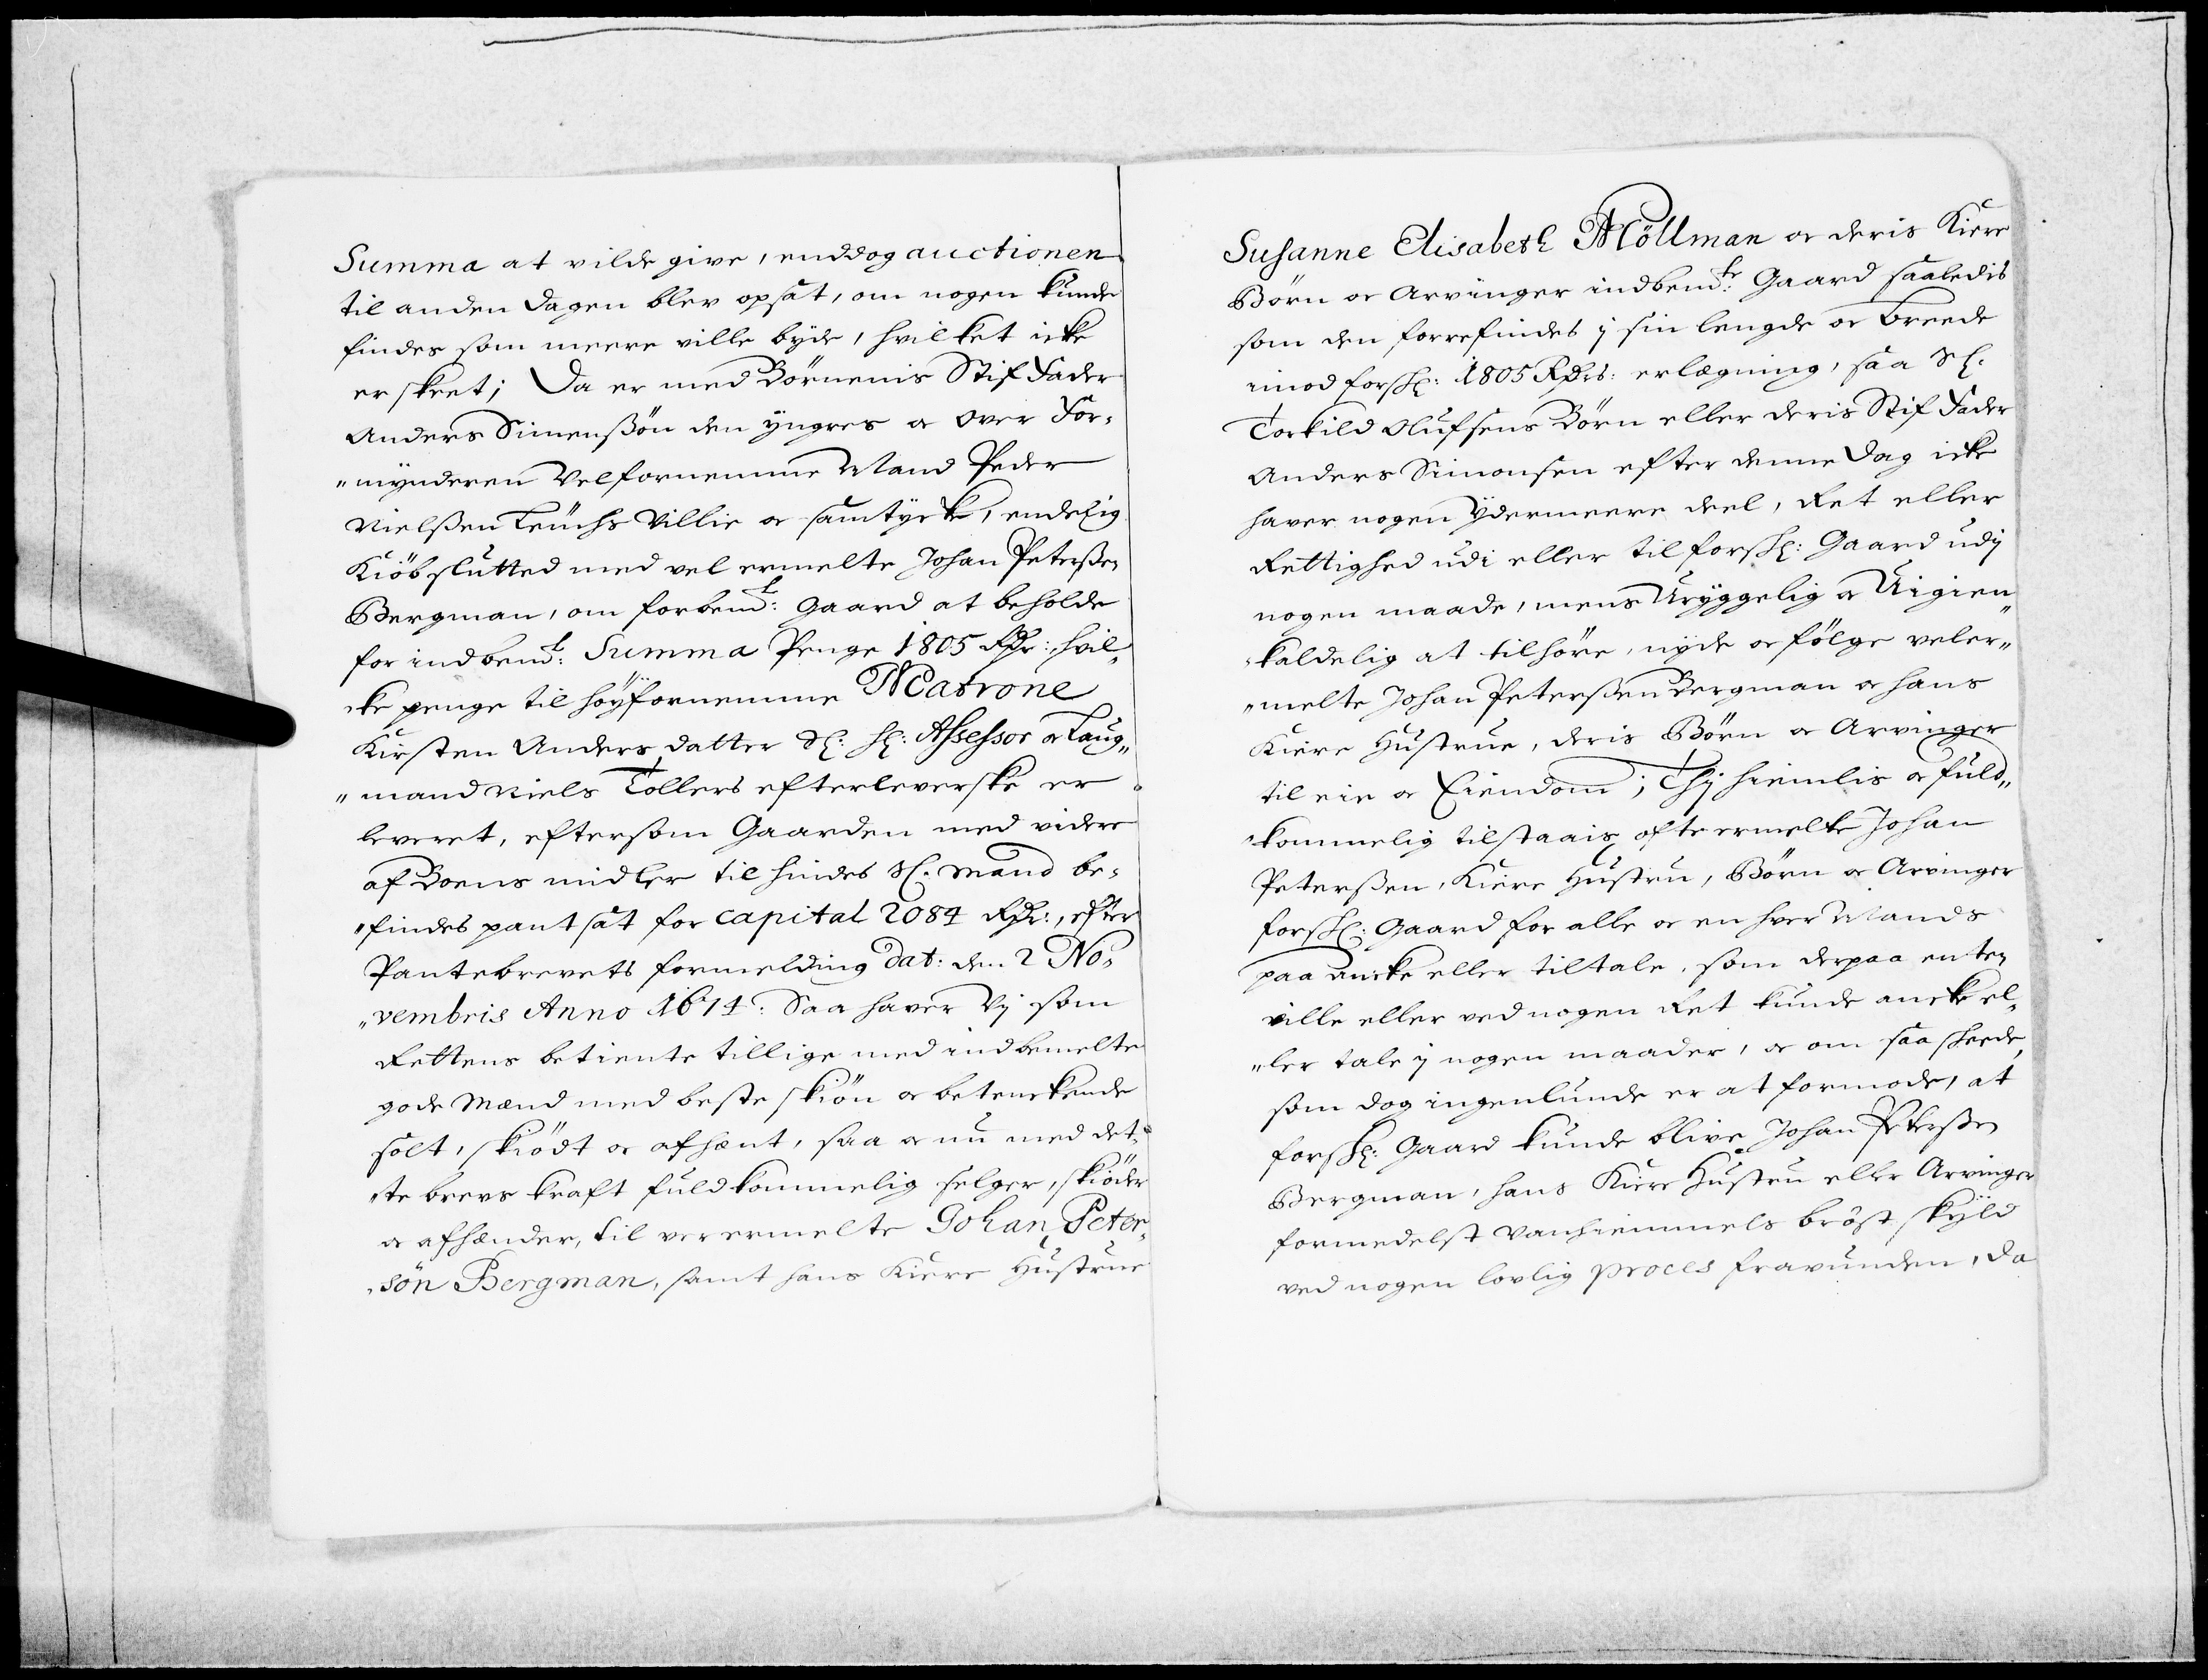 Summa at vilde give, enddog auctionen
til anden dagen blev opsat, om nogen kunde
findes som meere ville byde, hvilket icke
er skeet; Da er med Börnenis Stif Fader
Anders Simensßön den yngres oc Over For-
"mynderen Velfornemme Mand Peder
Nielsßen Leuchs Villie oc samtycke, endelig
Kiöbslutted med vel ermelte Johan Petersßen
Bergman, om forbemt: Gaard at beholde
for indbemt: Summa Penge 1805 Rdr: hvil„
"cke penge til höyfornemme Matrone
Kirsten Anders datter Sl: Hl: Assessor oc Laug„
"mand Niels Tollers efterleverske er
leveret, eftersom Gaarden med videre
af Boens midler til hindes Sl. Mand be-
"findes pantsat for Capital 2084 Rdr:, efter
Pantebrevets formelding Dat: den 2 No-
"vembris Anno 1674: Saa haver Vj som
Rettens betiente tillige med indbemelte
gode Mænd med beste skiön oc betenckende
solt, skiödt oc afhænt, saa oc nu med det-
"te brevs kraft fuldkommelig selger, skiöder
oc afhænder, til verermelte Johan Peter„
"sön Bergman, samt hans Kiere Hustrue
Susanne Elisabeth Möllman oc deris Kiere
Börn oc Arvinger indbemte: Gaard saaledis
som den forrefindes j sin lengde oc breede
imod forskl: 1805 Rdrs: erlægning, saa Sl.
Torkild Olufsens Börn eller deris Stif Fader
Anders Simonsen efter denne Dag icke
haver nogen ydermeere deel, Ret eller
Rettighed udi eller til forskl: Gaard udj
nogen maade, mens Uryggelig oc Uigien„
"kaldelig at tilhöre, nyde oc fölge veler„
"melte Johan Petersßen Bergman oc hans
Kiere Hustrue, deris Börn oc Arvinger
til eie oc Eiendom; Thj hiemlis oc fuld„
"kommelig tilstaais ofte ermelte Johan
Petersßen, Kiere Hustru, Börn oc Arvinger
forskl: Gaard for alle oc en hver Mands
paa ancke eller tiltale, som derpaa enten
ville eller ved nogen Ret kunde ancke el„
"ler tale j nogen maader, oc om saa skeede,
som dog ingenlunde er at formode, at
forskl: Gaard kunde blive Johan Petersßen
Bergman, hans Kiere Hustru eller Arvinger
formedelst Vanhiemmels bröst skyld
ved nogen lovlig proces fravunden, da